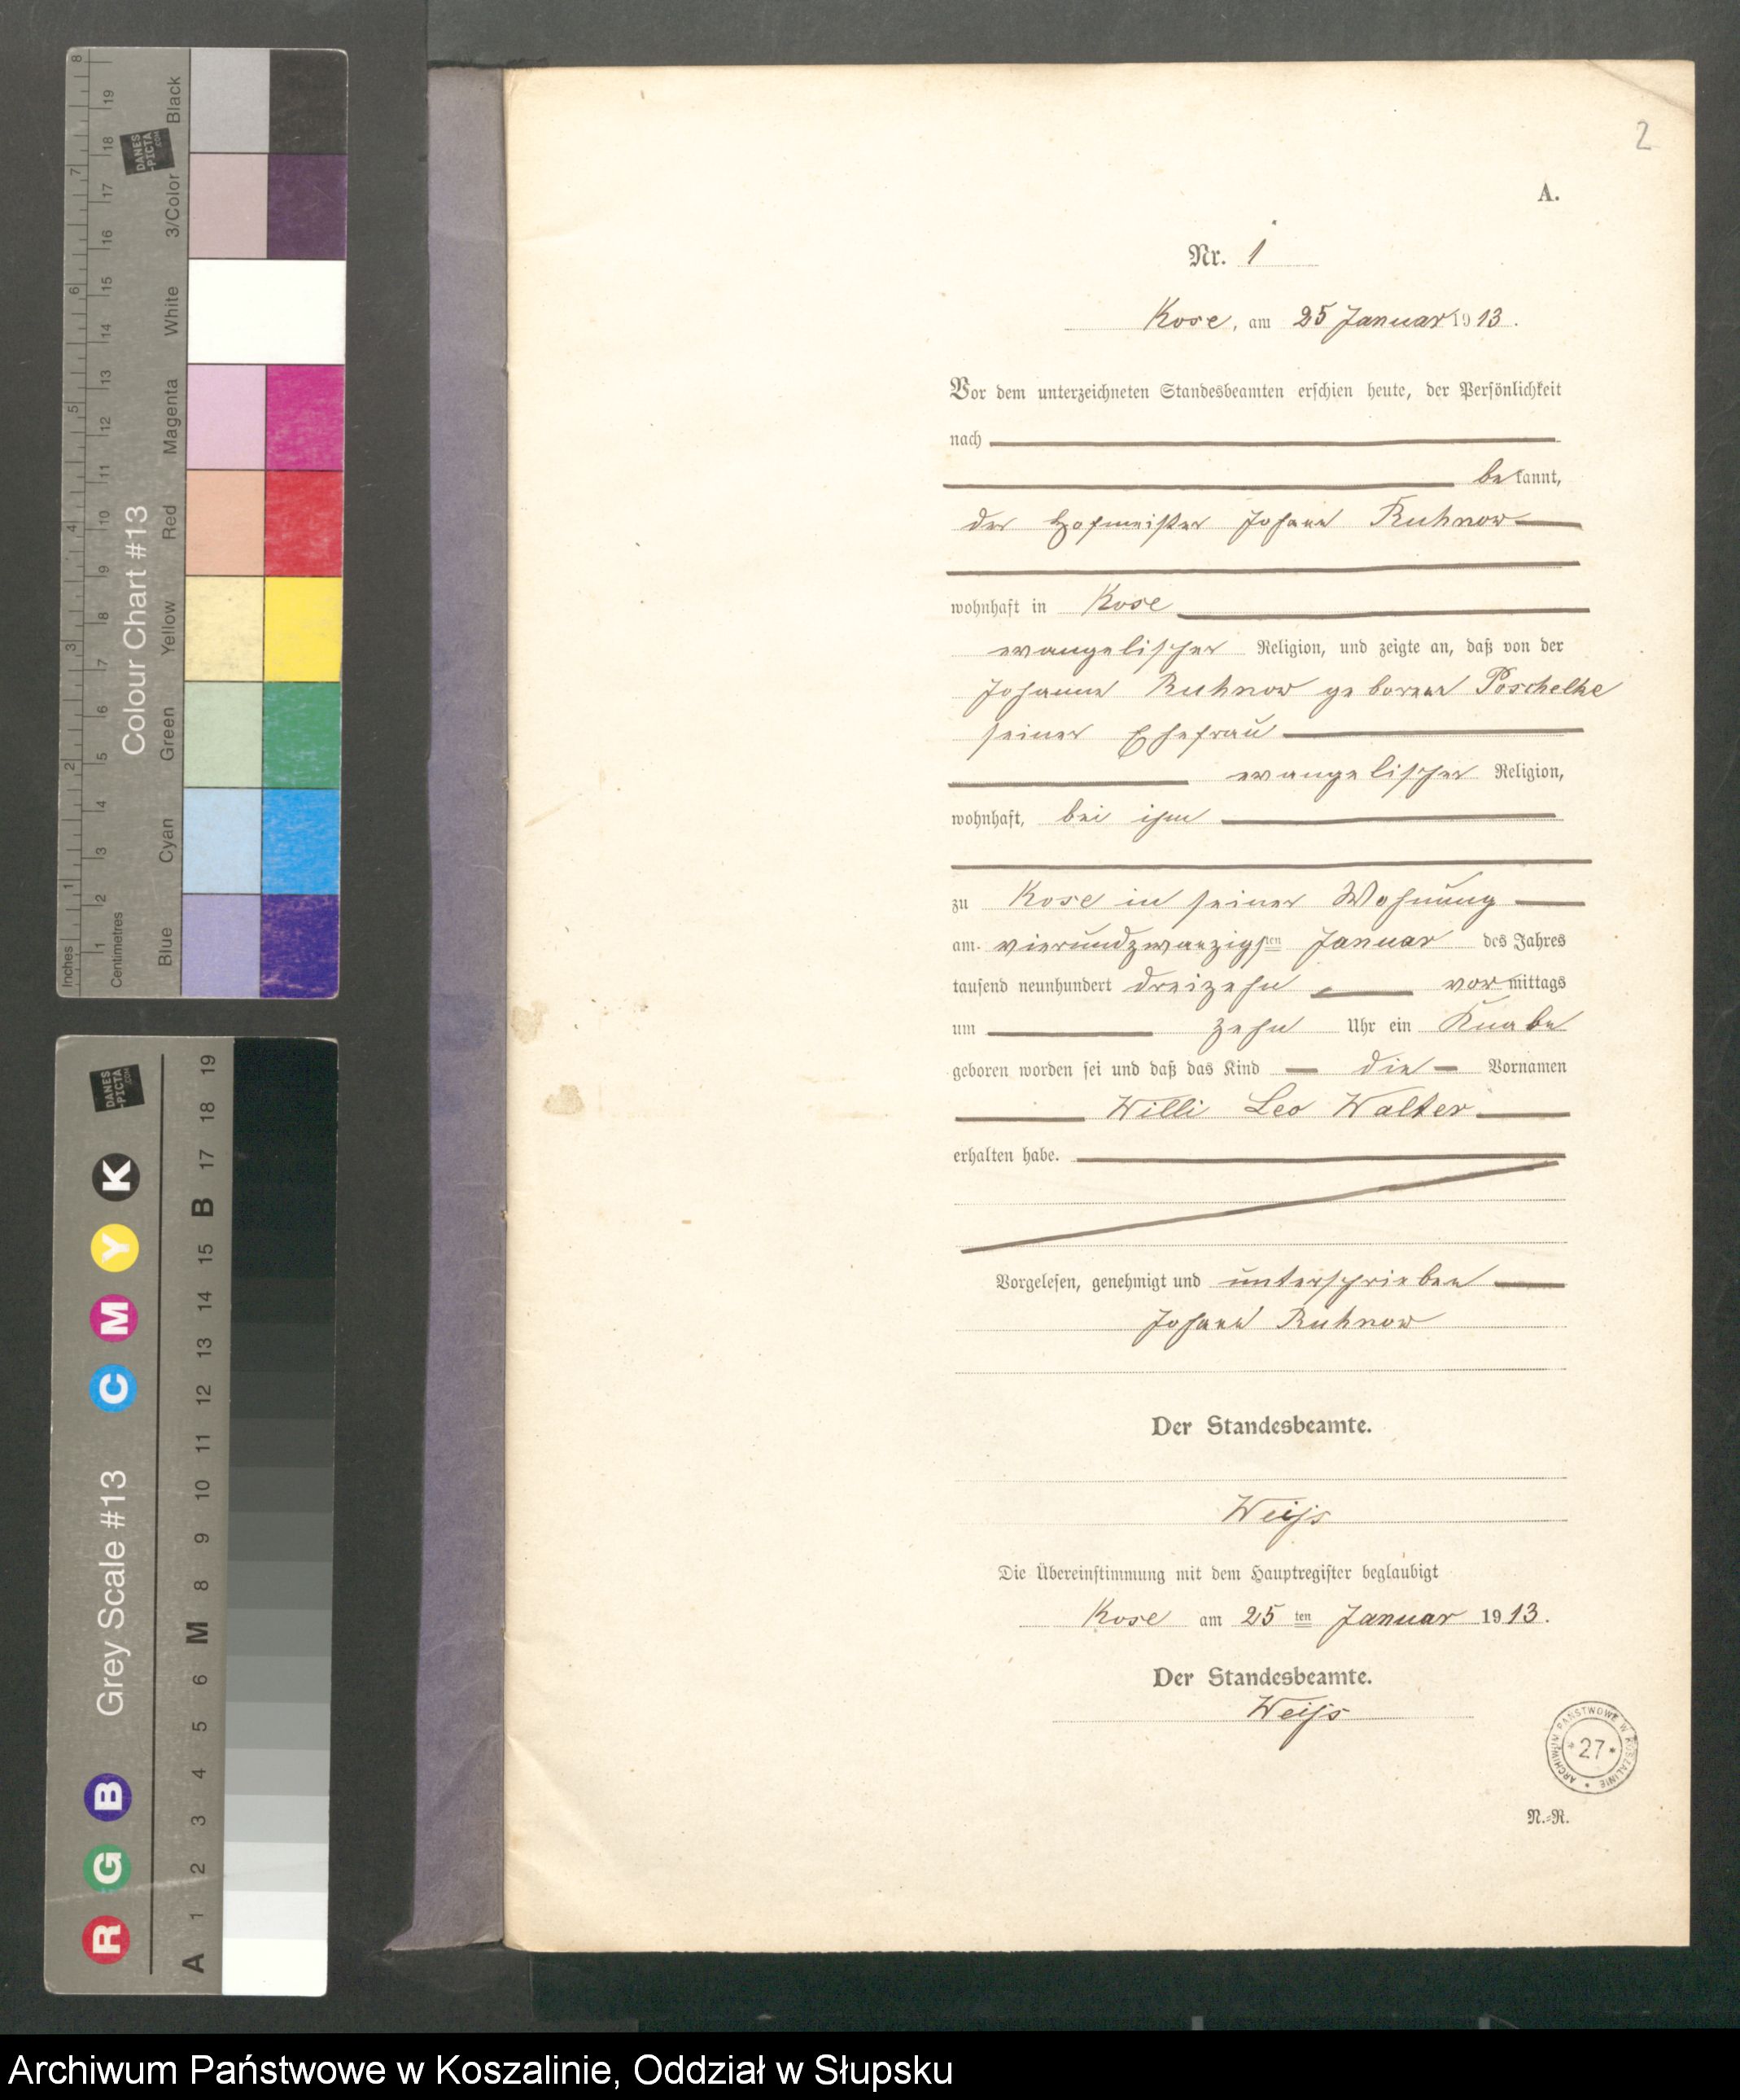 2
A.
Nr. 1
Kose, am 25 Januar 1913.
Vor dem unterzeichneten Standesbeamten erschien heute, der Persönlichkeit
nach
bekannt,
der Hofmeister Johann Ruhnow
wohnhaft in Kose
evangelischer Religion, und zeigte an, daß von der
Johanna Ruhnow geborene Poschelke
seiner Ehefrau
evangelischer Religion,
wohnhaft, bei ihm
zu Kose in seiner Wohnung
am vierundzwanzigsten Januar des Jahres
tausend neunhundert dreizehn vormittags
um zehn Uhr ein Knabe
geboren worden sei und daß das Kind die Vornamen
Willi Leo Walter
erhalten habe.
Vorgelesen, genehmigt und unterschrieben
Johann Ruhnow
Der Standesbeamte.
Weiß
Die Übereinstimmung mit dem Hauptregister beglaubigt
Kose am 25ten Januar 1913.
Der Standesbeamte.
Weiß
ARCHIWUM PAŃSTWOWE W KOSZALINIE
* 27 *
N.-R.
Colour Chart #13
Inches 1 2 3 4 5 6 7 8
Centimetres 1 2 3 4 5 6 7 8 9 10 11 12 13 14 15 16 17 18 19
Blue Cyan Green Yellow Red Magenta White 3/Color Black
DANES
-PICTA
.COM
Grey Scale #13
R G B C M Y K
A 1 2 3 4 5 6 M 8 9 10 11 12 13 14 15 B 17 18 19
DANES
-PICTA
.COM
Archiwum Państwowe w Koszalinie, Oddział w Słupsku